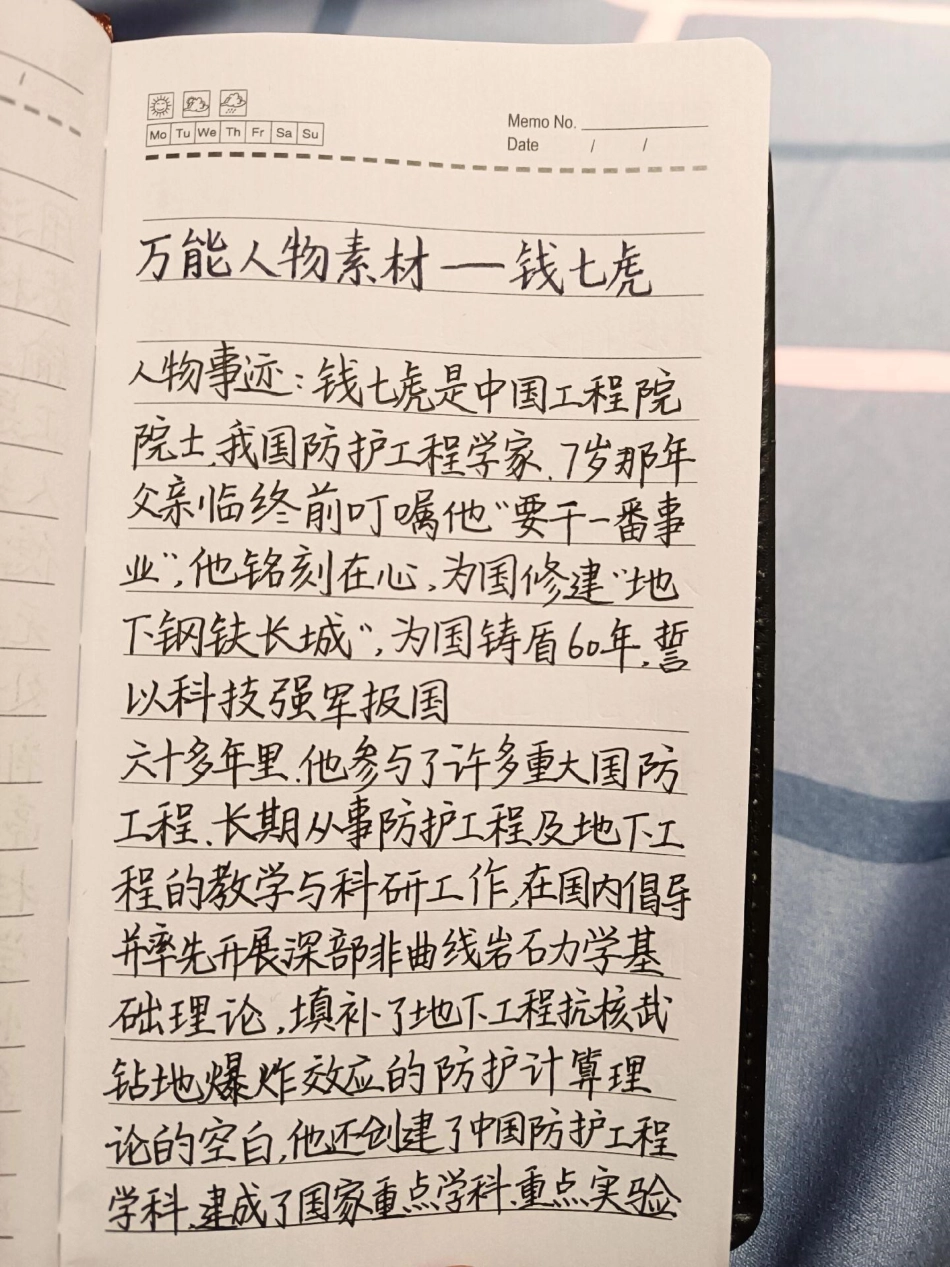 Mo Tu We Th Fr Sa Su
Memo No.
Date / /
万能人物素材——钱七虎
人物事迹：钱七虎是中国工程院
院士,我国防护工程学家.7岁那年
父亲临终前叮嘱他“要干一番事
业”,他铭刻在心,为国修建“地
下钢铁长城”,为国铸盾60年,誓
以科技强军报国
六十多年里.他参与了许多重大国防
工程、长期从事防护工程及地下工
程的教学与科研工作,在国内倡导
并率先开展深部非曲线岩石力学基
础理论,填补了地下工程抗核武
钻地爆炸效应的防护计算理
论的空白,他还创建了中国防护工程
学科,建成了国家重点学科、重点实验